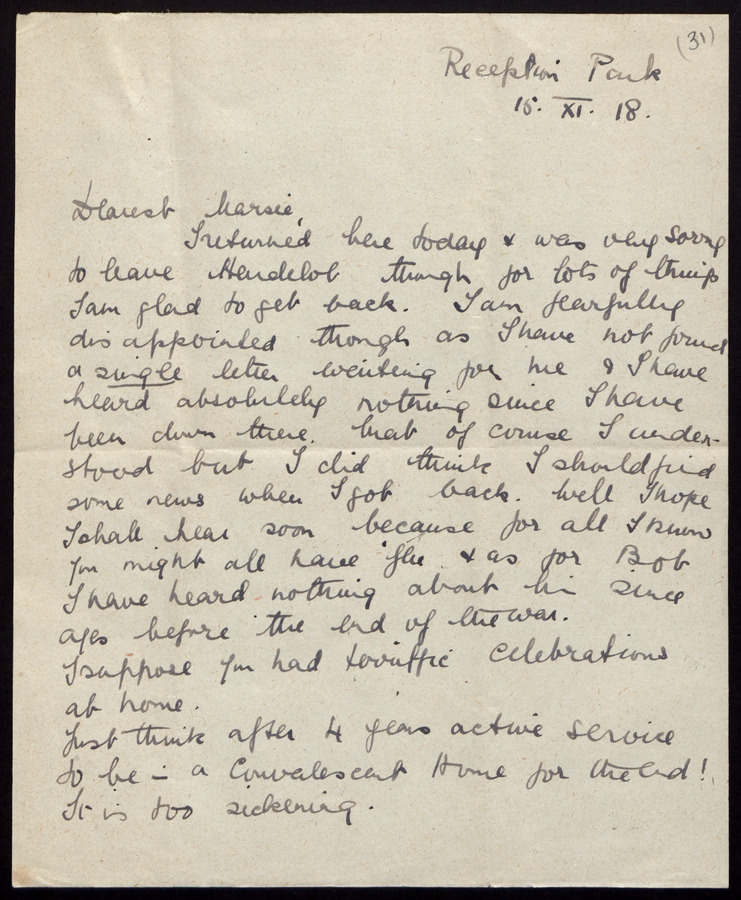 (31)
Reception Park
15. XI. 18.
Dearest Marsie,
I returned here today & was very sorry
to leave Hardelot though for lots of things
I am glad to get back. I am fearfully
disappointed though as I have not found
a single letter waiting for me & I have
heard absolutely nothing since I have
been down there. that of course I under-
stood but I did think I should find
some news when I got back. Well I hope
I shall hear soon because for all I know
you might all have 'flu & as for Bob
I have heard nothing about him since
ages before the end of the war.
I suppose you had terriffic celebrations
at home.
Just think after 4 years active service
to be in a Convalescent Home for the end!
It is too sickening.